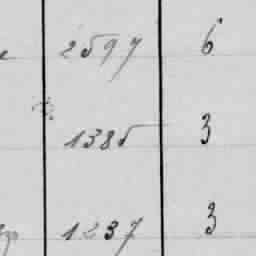 2597 6
1385 3
1237 3